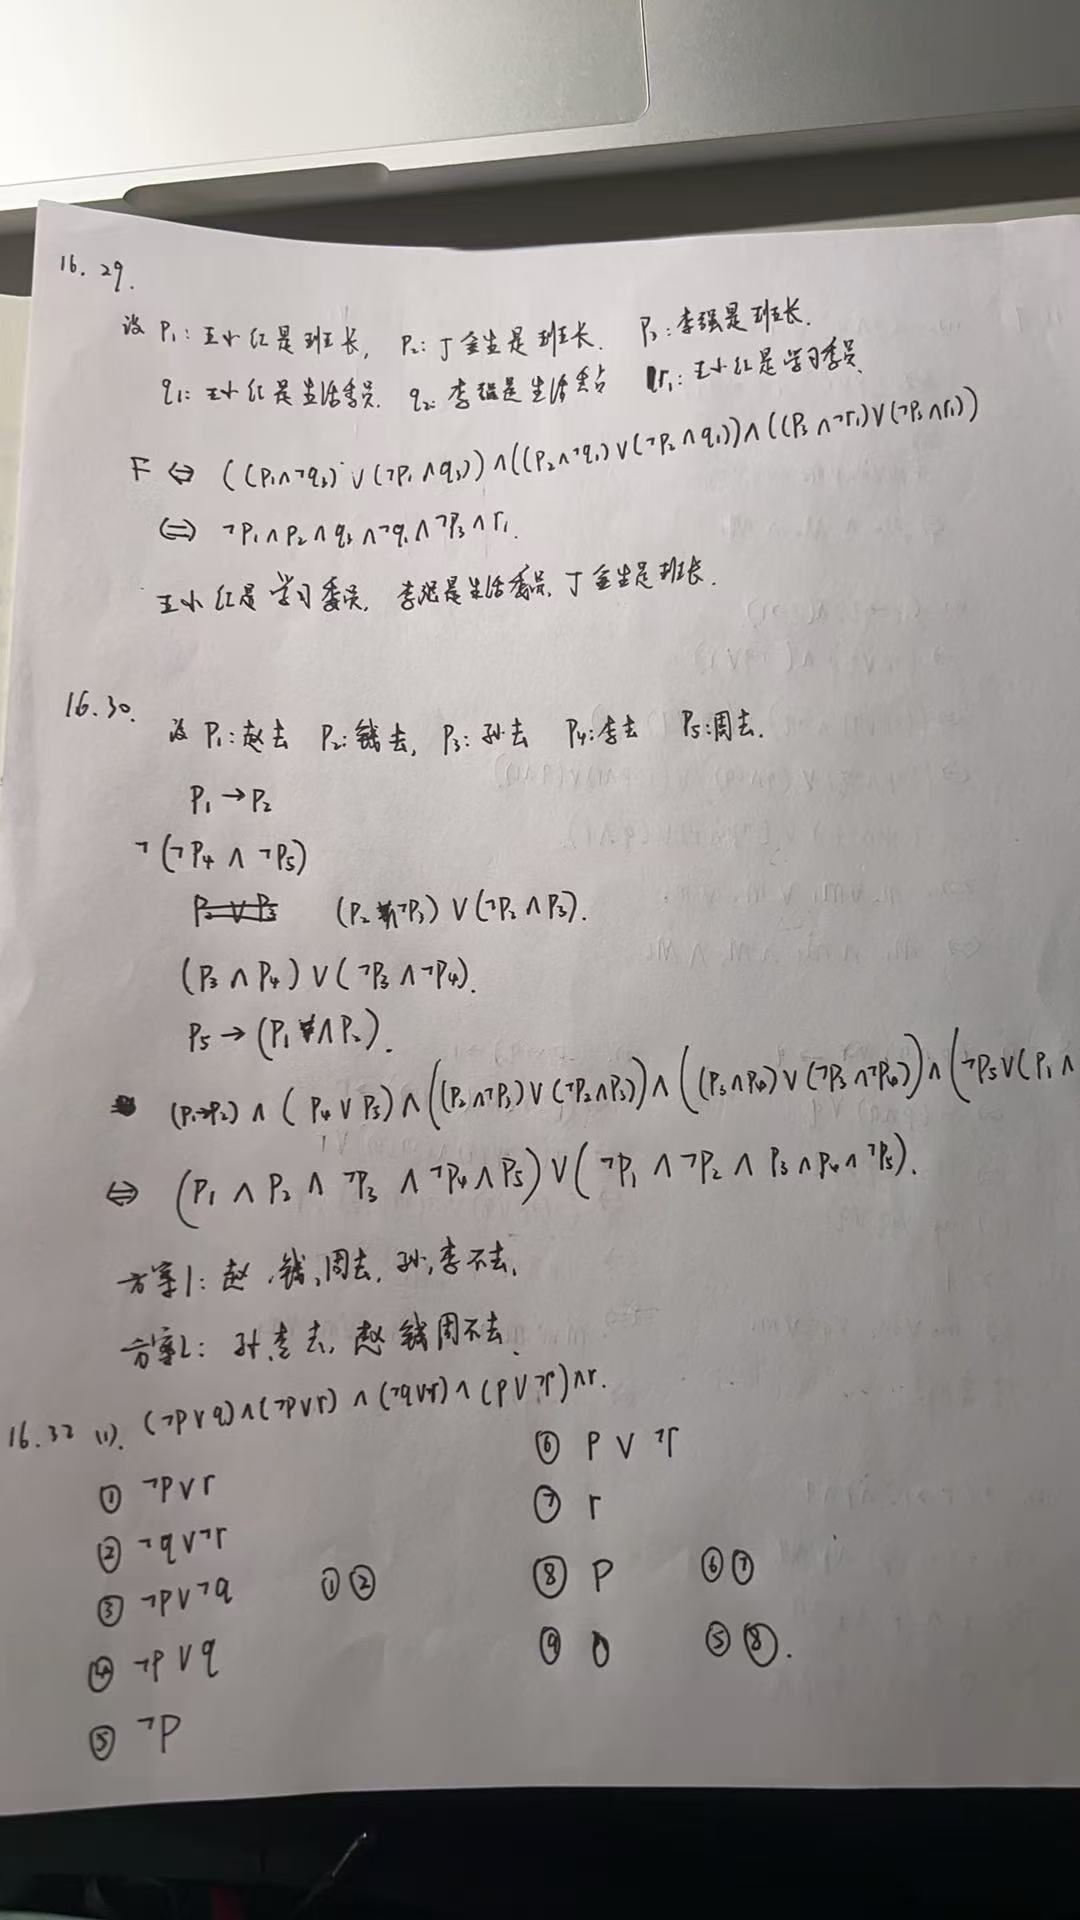 16.29.
设 P₁: 王小红是班长, P₂: 丁金生是班长. P₃: 李强是班长.
q₁: 王小红是生活委员. q₂: 李强是生活委员 r₁: 王小红是学习委员.
F ⇔ ((P₁∧¬q₃)∨(¬P₁∧q₃))∧((P₂∧¬q₁)∨(¬P₂∧q₁))∧((P₃∧¬r₁)∨(¬P₃∧r₁))
⇔ ¬P₁∧P₂∧q₃∧¬q₁∧¬P₃∧r₁.
王小红是学习委员, 李强是生活委员, 丁金生是班长.
16.30.
设 P₁: 赵去 P₂: 钱去, P₃: 孙去 P₄: 李去 P₅: 周去.
P₁→P₂
¬(¬P₄∧¬P₅)
P₂∨P₃ (P₂∧¬P₃)∨(¬P₂∧P₃).
(P₃∧P₄)∨(¬P₃∧¬P₄).
P₅→(P₁∧P₂).
(P₁→P₂)∧(P₄∨P₅)∧((P₂∧¬P₃)∨(¬P₂∧P₃))∧((P₃∧P₄)∨(¬P₃∧¬P₄))∧(¬P₅∨(P₁∧
⇔ (P₁∧P₂∧¬P₃∧¬P₄∧P₅)∨(¬P₁∧¬P₂∧P₃∧P₄∧¬P₅).
方案1: 赵、钱、周去, 孙、李不去,
方案2: 孙、李去, 赵钱周不去.
16.32 (1). (¬P∨q)∧(¬P∨r)∧(¬q∨¬r)∧(P∨¬r)∧r.
① ¬P∨r
② ¬q∨¬r
③ ¬P∨¬q ①②
④ ¬P∨q
⑤ ¬P
⑥ P∨¬r
⑦ r
⑧ P ⑥⑦
⑨ 0 ⑤⑧.